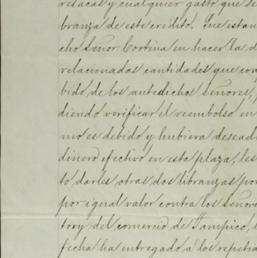 resacas y cualquier gasto que se
branza de este credito. Que estan
cho Señor Cortina en hacer la d
relacionadas cantidades que con
bido, de los antedichos señores, p
diendo verificar el reembolso en
mo es debido y hubiera desead
dinero efectivo en esta plaza, les
to darles otras dos libranzas por
por igual valor contra los Señor
tory del comercio de Tampico,
fecha ha entregado a los repetid